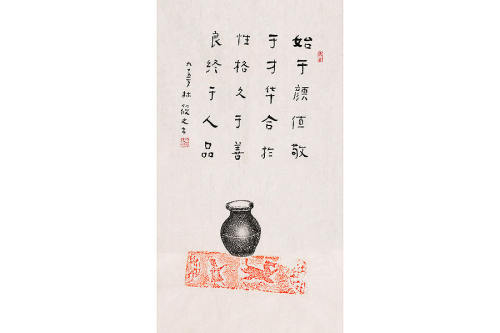 始于颜值敬
于才华合於
性格久于善
良终于人品
九十五 林筱之